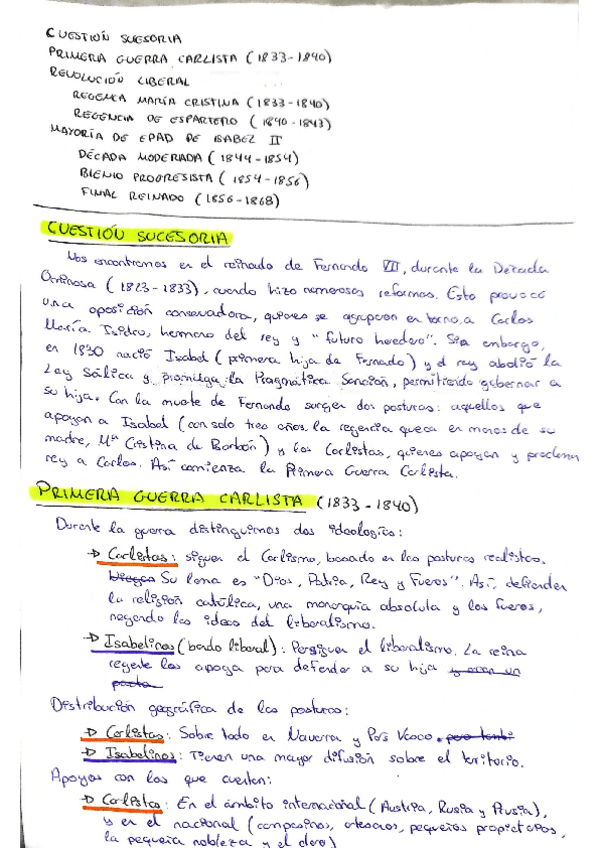 CUESTIÓN SUESORIA
PRIMERA GUERRA CARLISTA (1833-1840)
REVOLUCIÓN LIBERAL
REGENCA MARÍA CRISTINA (1833-1840)
REGENCIA DE ESPARTERO (1840-1843)
MAYORÍA DE EDAD DE ISABEL II
DÉCADA MODERADA (1844-1854)
BIENIO PROGRESISTA (1854-1856)
FINAL REINADO (1856-1868)
CUESTIÓN SUCESORIA
Nos encontramos en el reinado de Fernando VII, durante la Década
Ominosa (1823-1833), cuando hizo numerosas reformas. Esto provocó
una oposición conservadora, quienes se agrupan en torno a Carlos
María Isidro, hermano del rey y "futuro heredero". Sin embargo,
en 1830 nació Isabel (primera hija de Fernando) y el rey abolió la
Ley Sálica y promulga la Pragmática Sanción, permitiendo gobernar a
su hija. Con la muerte de Fernando surgen dos posturas: aquellos que
apoyan a Isabel (con solo tres años, la regencia queda en manos de su
madre, Mª Cristina de Borbón) y los Carlistas, quienes apoyan y proclaman
rey a Carlos. Así comienza la Primera Guerra Carlista.
PRIMERA GUERRA CARLISTA (1833-1840)
Durante la guerra distinguimos dos ideologías:
→ Carlistas: siguen el Carlismo, basado en las posturas realistas.
Su lema es "Dios, Patria, Rey y Fueros". Así, defienden
la religión católica, una monarquía absoluta y los fueros,
negando las ideas del liberalismo.
→ Isabelinos (bando liberal): Persiguen el liberalismo. La reina
regente los apoya para defender a su hija
Distribución geográfica de las posturas:
→ Carlistas: Sobre todo en Navarra y País Vasco.
→ Isabelinos: Tienen una mayor difusión sobre el territorio.
Apoyos con los que cuentan:
→ Carlistas: En el ámbito internacional (Austria, Rusia y Prusia),
y en el nacional (campesinos, artesanos, pequeños propietarios,
la pequeña nobleza y el clero)